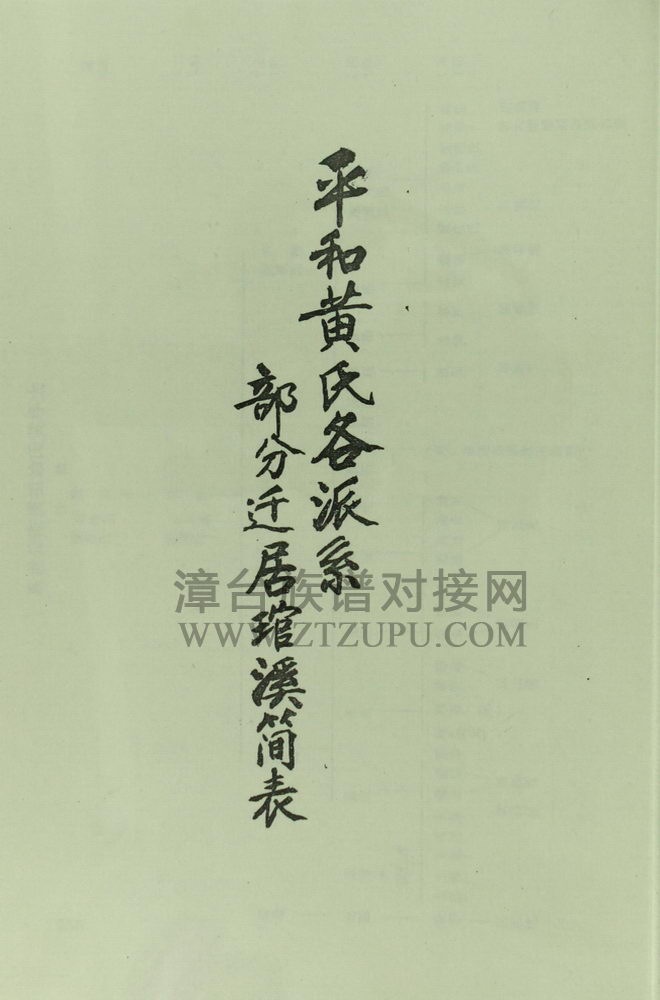 平和黄氏各派系
部分迁居琯溪简表
漳台族谱对接网
WWW.ZTZUPU.COM